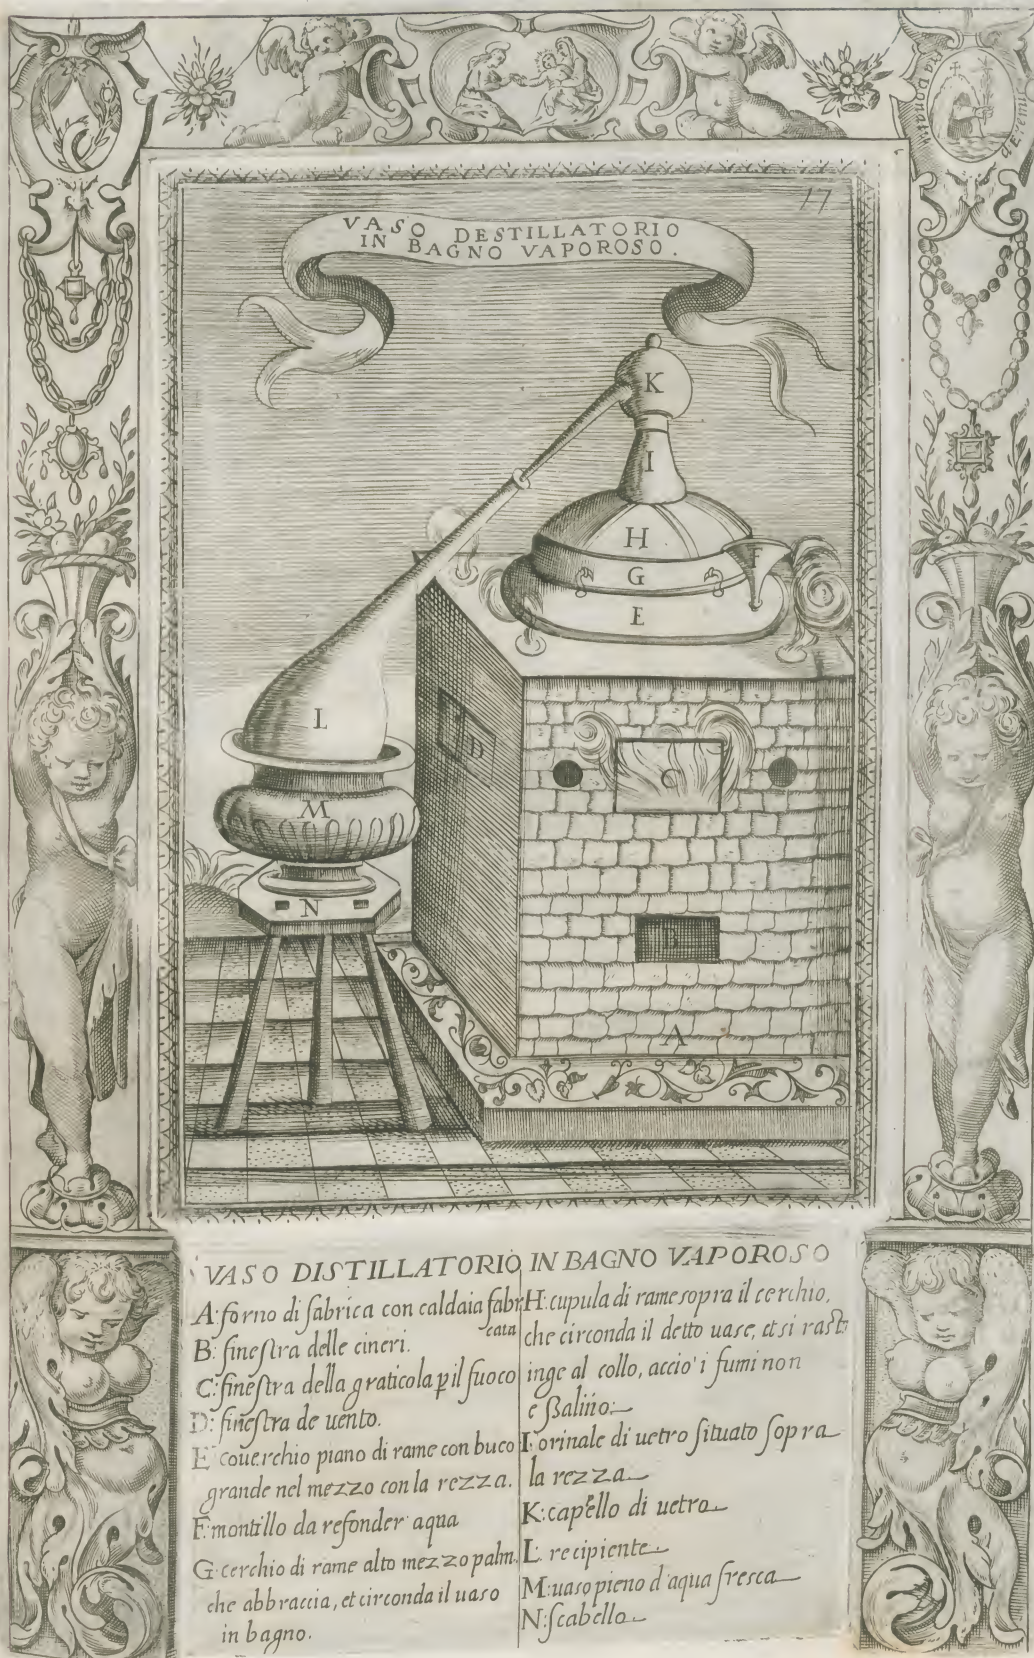 17
VASO DESTILLATORIO
IN BAGNO VAPOROSO.
K
I
H
F
G
E
L
D
C
M
N
B
A
VASO DISTILLATORIO IN BAGNO VAPOROSO
A: forno di fabrica con caldaia fabr
cata
B: fineſtra delle cineri.
C: fineſtra della graticola p il fuoco
D: fineſtra de uento.
E couerchio piano di rame con buco
grande nel mezzo con la rezza.
F: montillo da refonder aqua
G: cerchio di rame alto mezzo palm.
che abbraccia, et circonda il uaso
in bagno.
H: cupula di rame sopra il cerchio,
che circonda il detto uase, et si rast
inge al collo, accio' i fumi non
eſsalino:
I: orinale di uetro ſituato ſopra
la rezza
K: capello di uetro
L: recipiente
M: uaso pieno d'aqua freſca
N: ſcabello